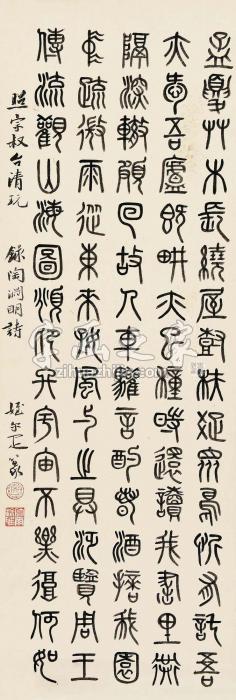 孟夏艸木長繞屋樹扶疏眾鳥欣有託吾
亦愛吾廬既耕亦已種時還讀我書里巷
隔深轍頗回故人車歡言酌春酒擿我園
疏微雨從東來好風與之具汎覽周王
傳流觀山海圖俯仰終宇宙不樂復何如
照宇叔台清玩 錄陶淵明詩 姪尔疋篆